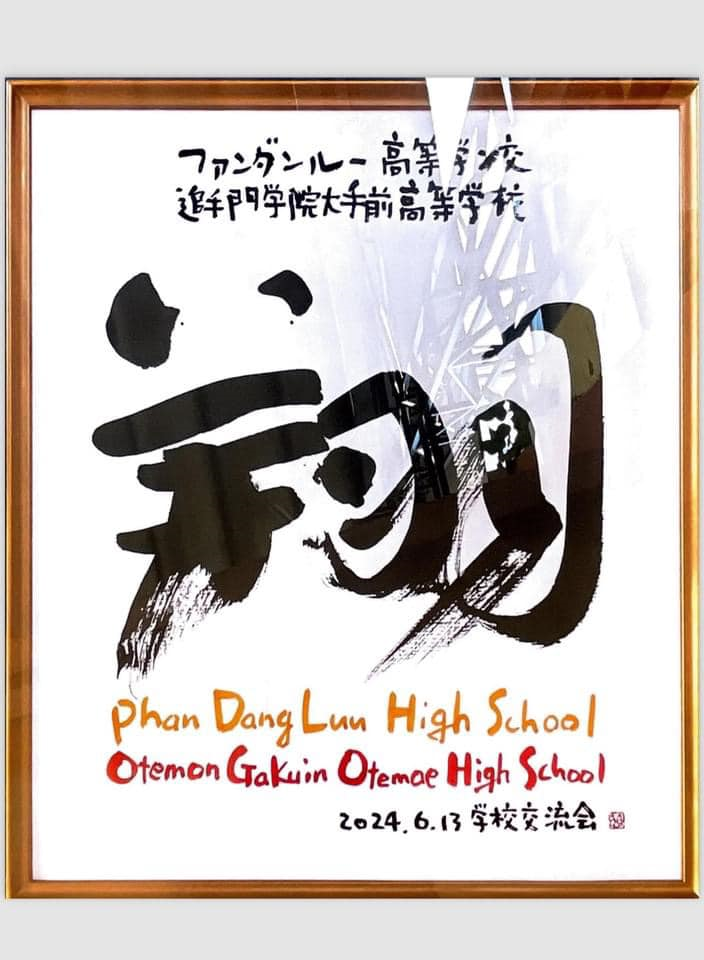 ファンダンルー高等学校
追手門学院大手前高等学校
翔
Phan Dang Luu High School
Otemon Gakuin Otemae High School
2024.6.13 学校交流会